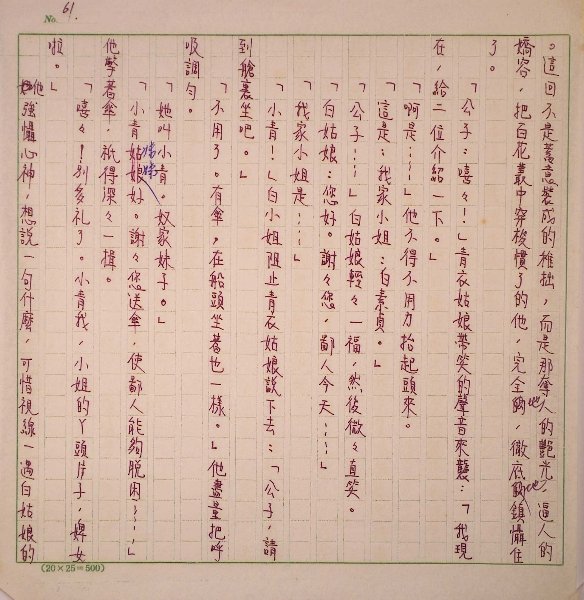 No. 61.
。這回不是蓄意裝成的稚拙,而是那奪人的艷光,逼人的
嬌容,把百花叢中穿梭慣了的他,完全地,徹底地鎮懾住
了。
「公子:嘻々!」青衣姑娘帶笑的聲音來襲:「我現
在,給二位介紹一下。」
「啊是……」他不得不用力抬起頭來。
「這是:我家小姐:白素貞。」
「公子……」白姑娘輕々一福,然後微々直笑。
「白姑娘:您好。謝々您,鄙人今天……」
「我家小姐是……」
「小青!」白小姐阻止青衣姑娘說下去:「公子,請
到艙裏坐吧。」
「不用了。有傘,在船頭坐著也一樣。」他盡量把呼
吸調勻。
「她叫小青。奴家妹子。」
「小青姑娘好。謝々您送傘,使鄙人能夠脫困……」
他擎著傘,祇得深々一揖。
「嘻々!別多禮了。小青我,小姐的丫頭片子,婢女
啦。」
他強懾心神,想說一句什麼,可惜視線一遇白姑娘的
(20×25=500)